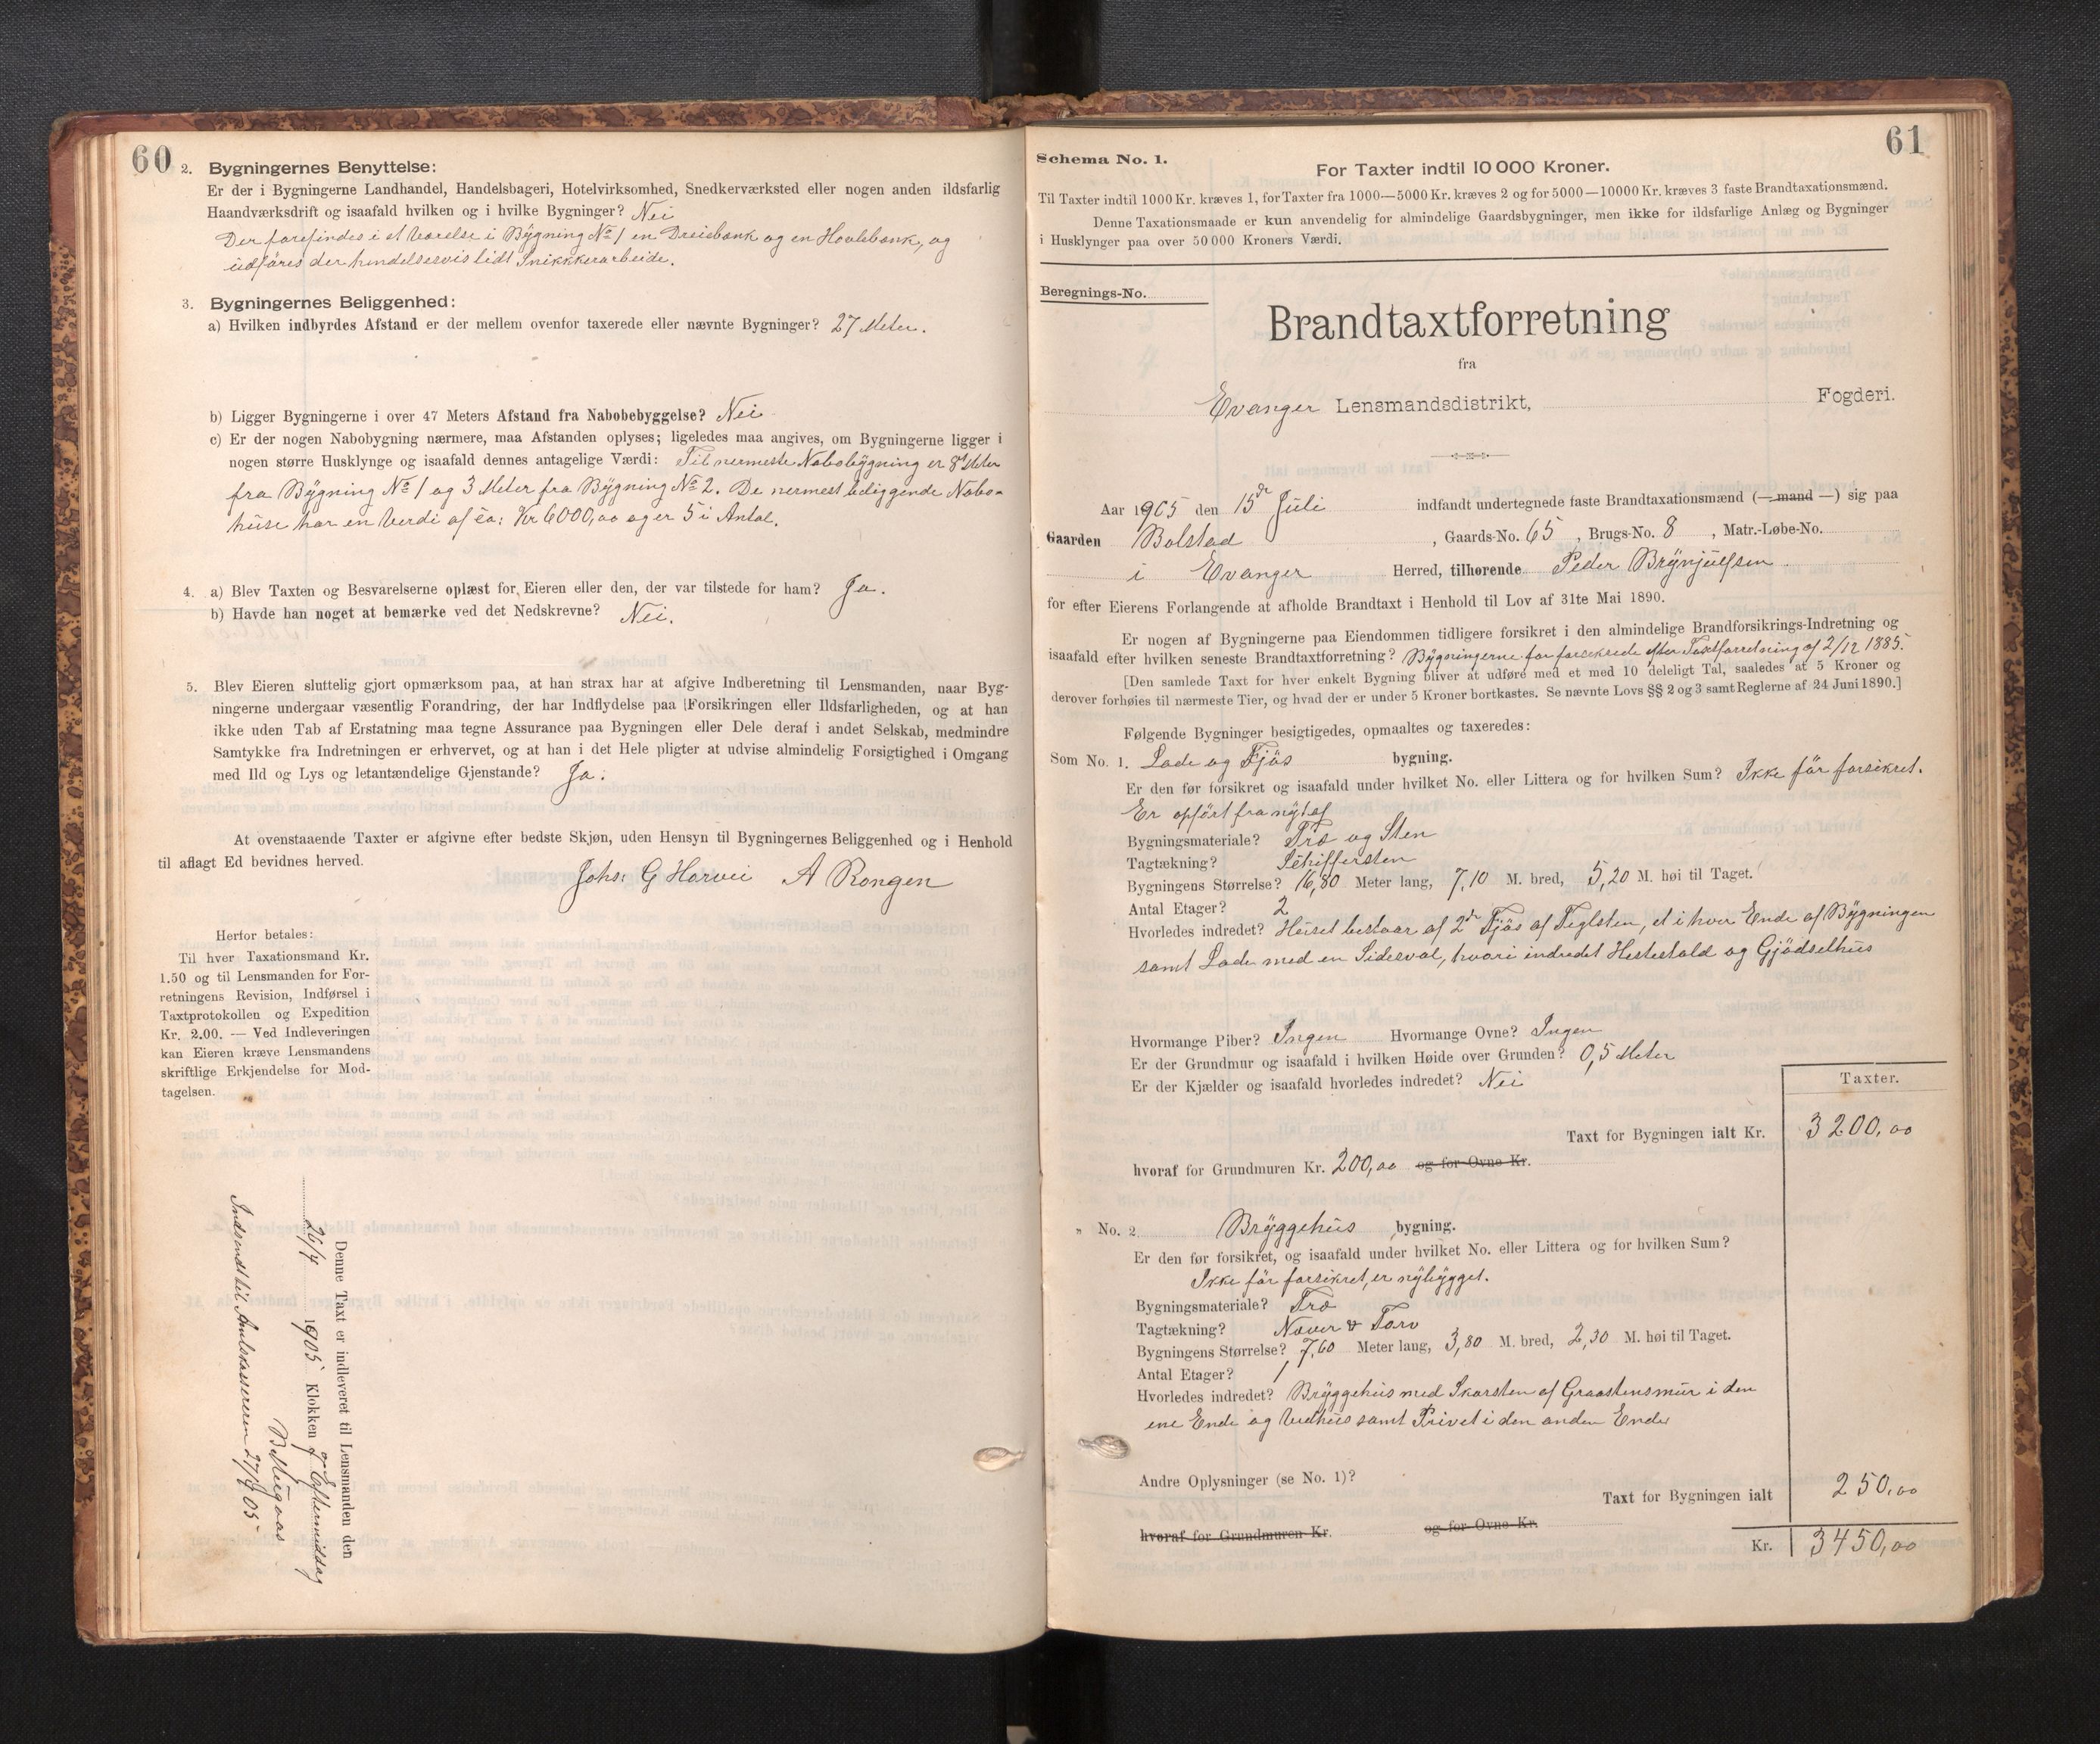 60
2. Bygningernes Benyttelse:
Er der i Bygningerne Landhandel, Handelsbageri, Hotelvirksomhed, Snedkerværksted eller nogen anden ildsfarlig
Haandværksdrift og isaafald hvilken og i hvilke Bygninger? Nei
Der forefindes i et Værelse i Bygning No 1 en Dreiebænk og en Høvlebænk, og
udføres der hendelsesvis lidt Snikkerarbeide.
3. Bygningernes Beliggenhed:
a) Hvilken indbyrdes Afstand er der mellem ovenfor taxerede eller nævnte Bygninger? 27 Meter.
b) Ligger Bygningerne i over 47 Meters Afstand fra Nabobebyggelse? Nei
c) Er der nogen Nabobygning nærmere, maa Afstanden oplyses; ligeledes maa angives, om Bygningerne ligger i
nogen større Husklynge og isaafald dennes antagelige Værdi: Til nermeste Nabobygning er 8 Meter
fra Bygning No 1 og 3 Meter fra Bygning No 2. De nermest beliggende Nabo-
huse har en Verdi af ca: Kr 6000,00 og er 5 i Antal.
4. a) Blev Taxten og Besvarelserne oplæst for Eieren eller den, der var tilstede for ham? Ja.
b) Havde han noget at bemærke ved det Nedskrevne? Nei.
5. Blev Eieren sluttelig gjort opmærksom paa, at han strax har at afgive Indberetning til Lensmanden, naar Byg-
ningerne undergaar væsentlig Forandring, der har Indflydelse paa Forsikringen eller Ildsfarligheden, og at han
ikke uden Tab af Erstatning maa tegne Assurance paa Bygningen eller Dele deraf i andet Selskab, medmindre
Samtykke fra Indretningen er erhvervet, og at han i det Hele pligter at udvise almindelig Forsigtighed i Omgang
med Ild og Lys og letantændelige Gjenstande? Ja.
At ovenstaaende Taxter er afgivne efter bedste Skjøn, uden Hensyn til Bygningernes Beliggenhed og i Henhold
til aflagt Ed bevidnes herved.
Johs: G Horvei A Rongen
Herfor betales:
Til hver Taxationsmand Kr.
1.50 og til Lensmanden for For-
retningens Revision, Indførsel i
Taxtprotokollen og Expedition
Kr. 2.00. — Ved Indleveringen
kan Eieren kræve Lensmandens
skriftlige Erkjendelse for Mod-
tagelsen.
Denne Taxt er indleveret til Lensmanden den
26/7 1905 Klokken 9 Eftermiddag
Indsendt til Amtskassereren 27/7 05
61
Schema No. 1.
For Taxter indtil 10 000 Kroner.
Til Taxter indtil 1000 Kr. kræves 1, for Taxter fra 1000—5000 Kr. kræves 2 og for 5000—10000 Kr. kræves 3 faste Brandtaxationsmænd.
Denne Taxationsmaade er kun anvendelig for almindelige Gaardsbygninger, men ikke for ildsfarlige Anlæg og Bygninger
i Husklynger paa over 50 000 Kroners Værdi.
Beregnings-No.
Brandtaxtforretning
fra
Evanger Lensmandsdistrikt, Fogderi.
Aar 1905 den 15de Juli indfandt undertegnede faste Brandtaxationsmænd (— mand —) sig paa
Gaarden Bolstad, Gaards-No. 65, Brugs-No. 8, Matr.-Løbe-No.
i Evanger Herred, tilhørende Peder Brynjulfsen
for efter Eierens Forlangende at afholde Brandtaxt i Henhold til Lov af 31te Mai 1890.
Er nogen af Bygningerne paa Eiendommen tidligere forsikret i den almindelige Brandforsikrings-Indretning og
isaafald efter hvilken seneste Brandtaxtforretning? Bygningerne før forsikrede efter Taxtforretning af 2/12 1885.
[Den samlede Taxt for hver enkelt Bygning bliver at udføre med et med 10 deleligt Tal, saaledes at 5 Kroner og
derover forhøies til nærmeste Tier, og hvad der er under 5 Kroner bortkastes. Se nævnte Lovs §§ 2 og 3 samt Reglerne af 24 Juni 1890.]
Følgende Bygninger besigtigedes, opmaaltes og taxeredes:
Som No. 1. Lade og Fjøs bygning.
Er den før forsikret og isaafald under hvilket No. eller Littera og for hvilken Sum? Ikke før forsikret.
Er opført fra nyt af
Bygningsmateriale? Træ og Sten
Tagtækning? Schiffersten
Bygningens Størrelse? 16,80 Meter lang, 7,10 M. bred, 5,20 M. høi til Taget.
Antal Etager? 2
Hvorledes indredet? Huset bestaar af 2de Fjøs af Teglsten, et i hver Ende af Bygningen
samt Lade med en Sidesval, hvori indredet Hestestald og Gjødselhus
Hvormange Piber? Ingen Hvormange Ovne? Ingen
Er der Grundmur og isaafald i hvilken Høide over Grunden? 0,5 Meter
Er der Kjælder og isaafald hvorledes indredet? Nei
Taxter.
Taxt for Bygningen ialt Kr. 3200,00
hvoraf for Grundmuren Kr. 200,00 og for Ovne Kr.
„ No. 2. Bryggehus bygning.
Er den før forsikret, og isaafald under hvilket No. eller Littera og for hvilken Sum?
Ikke før forsikret, er nybygget.
Bygningsmateriale? Træ
Tagtækning? Næver & Torv
Bygningens Størrelse? 7,60 Meter lang, 3,80 M. bred, 2,30 M. høi til Taget.
Antal Etager? 1
Hvorledes indredet? Bryggehus med Skorsten af Graastensmur i den
ene Ende og Vedhus samt Privet i den anden Ende
Andre Oplysninger (se No. 1)?
Taxt for Bygningen ialt 250,00
hvoraf for Grundmuren Kr. og for Ovne Kr.
Kr. 3450,00